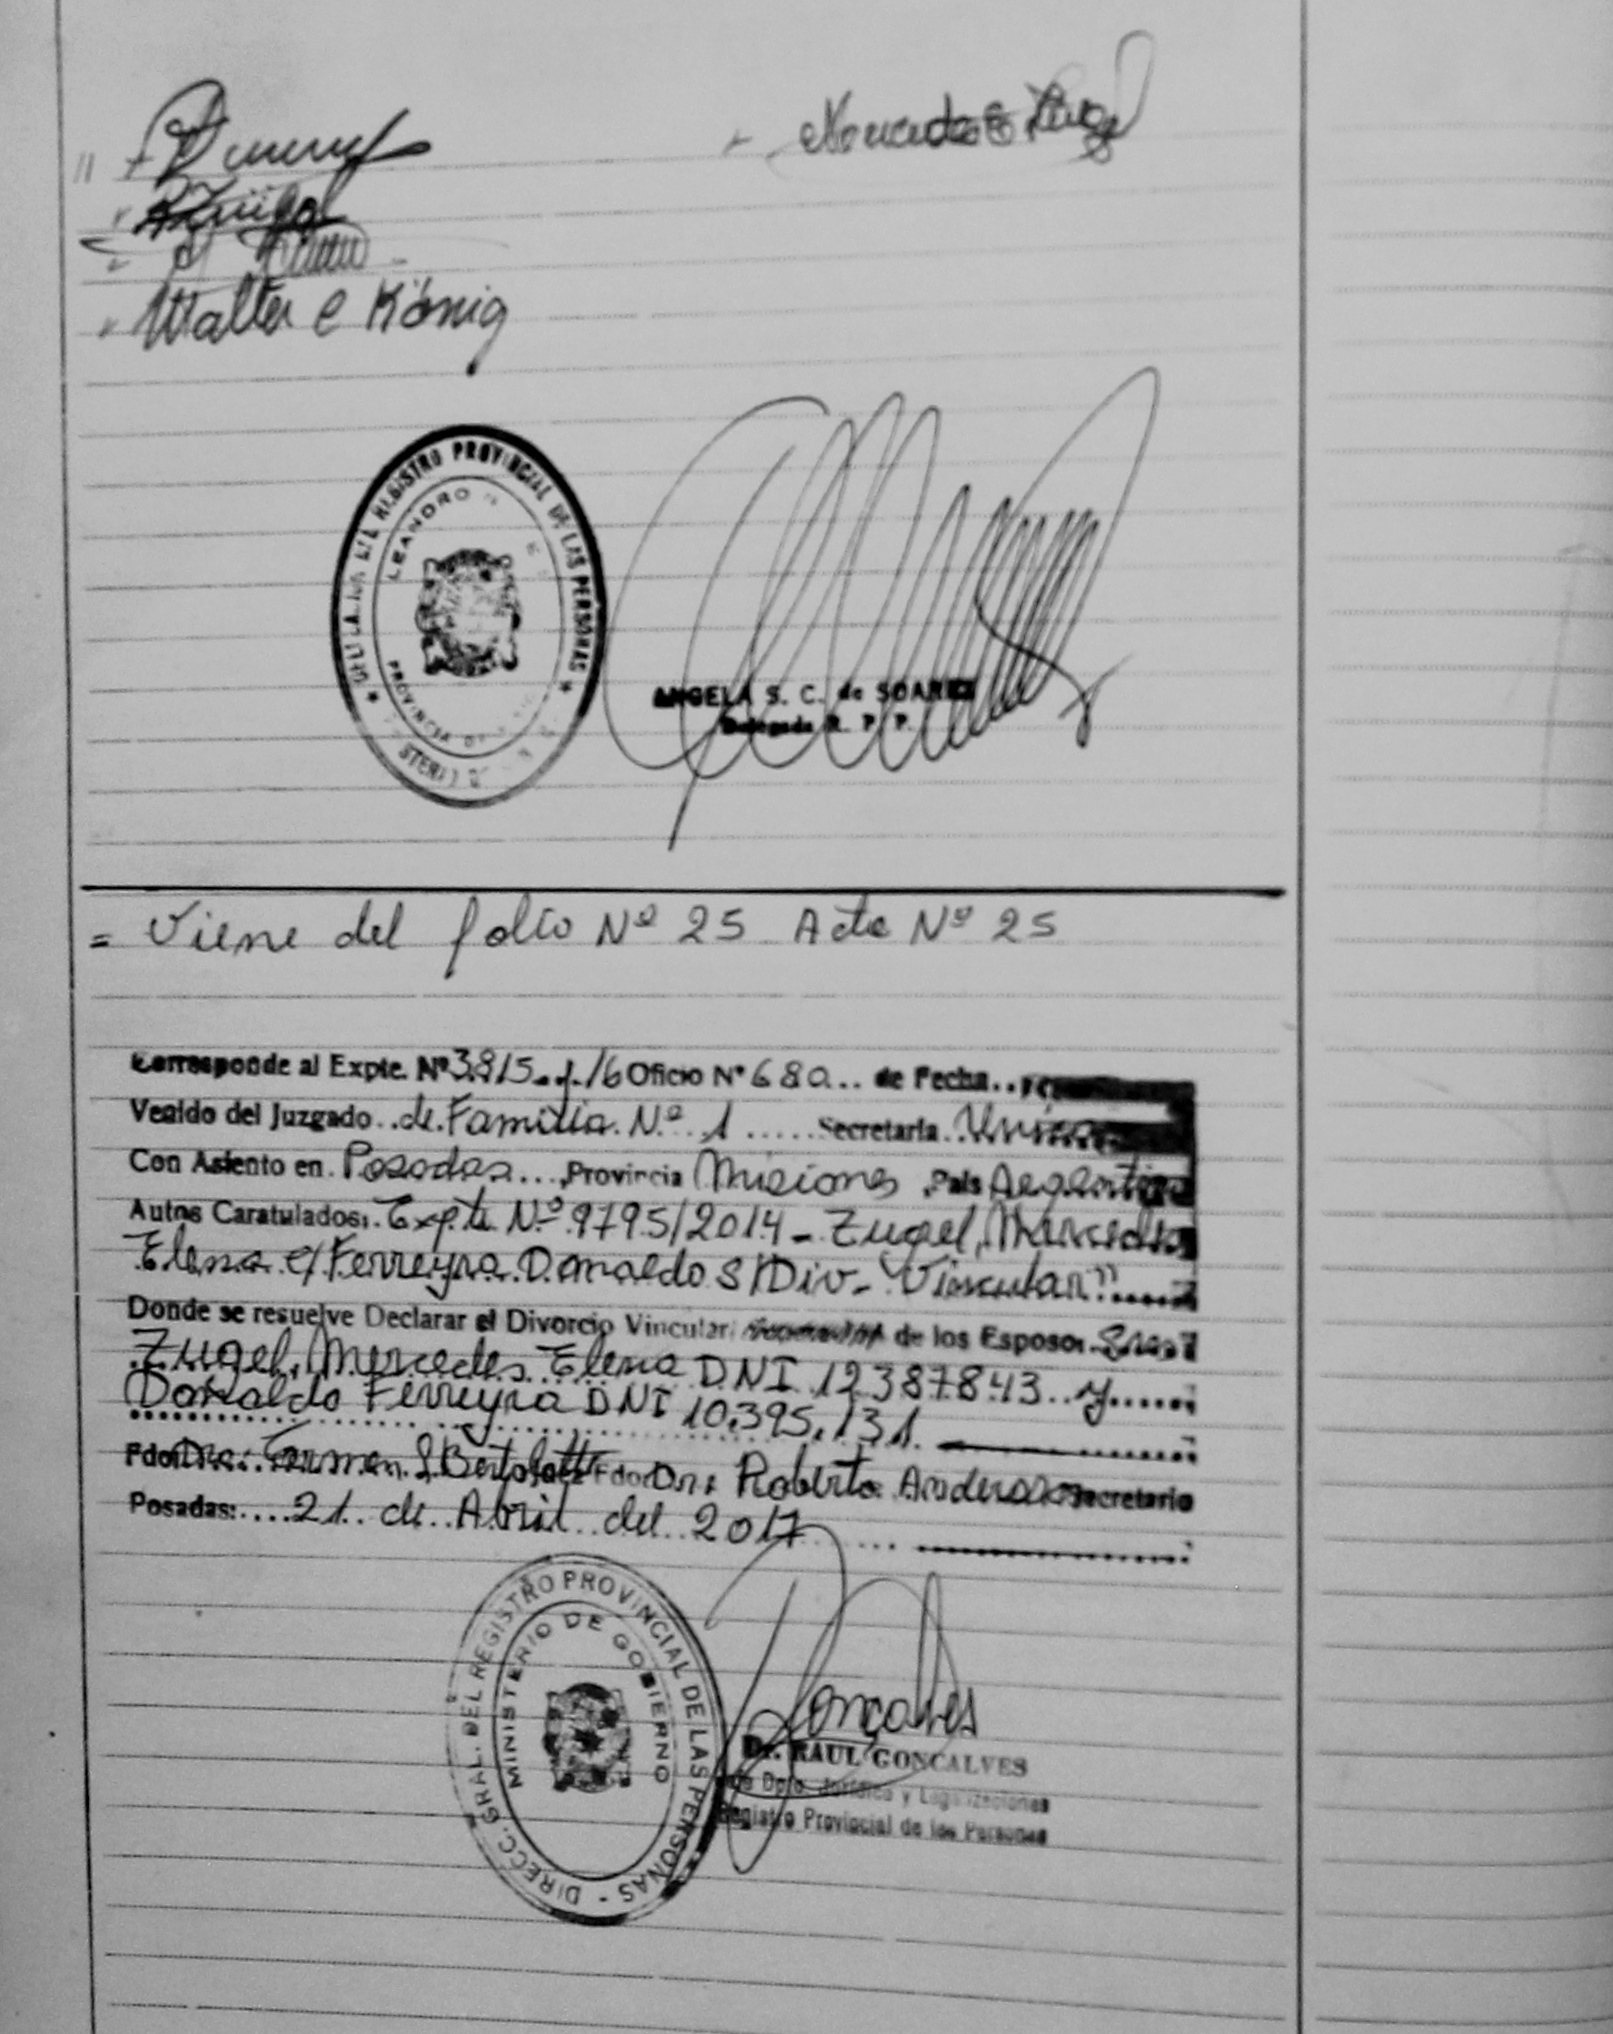 Walter e König
REGISTRO PROVINCIAL DE LAS PERSONAS
LEANDRO N
PROVINCIA
ANGELA S. C. de SOAREZ
Delegada R. P. P.
= Viene del folio Nº 25 Acta Nº 25
Corresponde al Expte. Nº 3815. /16 Oficio Nº 680 de Fecha
Venido del Juzgado de Familia Nº 1 Secretaria Unica
Con Asiento en Posadas Provincia Misiones País Argentina
Autos Caratulados: Expte Nº 9795/2014 - Zugel, Mercedes
Elena c/ Ferreyra Donaldo S/Div- Vincular"
Donde se resuelve Declarar el Divorcio Vincular de los Esposos
Zugel, Mercedes Elena DNI 12387843 y
Donaldo Ferreyra DNI 10.395.131.
Fdo: Dra: Carmen Bertolotti Juez Fdo: Dr: Roberto Anderson Secretario
Posadas: 21 de Abril del 2017
DIRECC. GRAL. DEL REGISTRO PROVINCIAL DE LAS PERSONAS -
MINISTERIO DE GOBIERNO
Gonçalves
Dr. RAUL GONCALVES
Dpto. Jurídico y Legalizaciones
Registro Provincial de las Personas